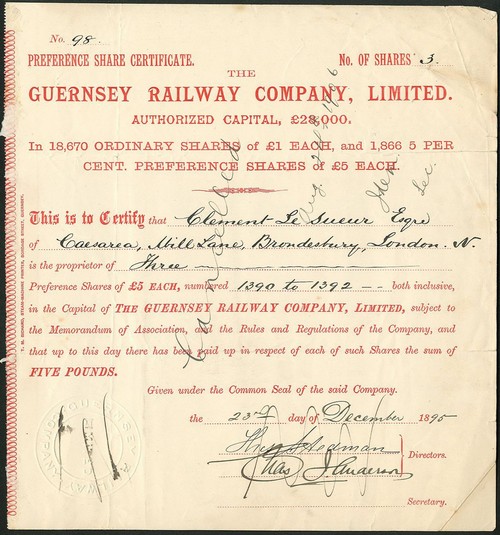 No. 98.
PREFERENCE SHARE CERTIFICATE. No. OF SHARES 3.
THE
GUERNSEY RAILWAY COMPANY, LIMITED.
AUTHORIZED CAPITAL, £28,000.
In 18,670 ORDINARY SHARES of £1 EACH, and 1,866 5 PER
CENT. PREFERENCE SHARES OF £5 EACH.
This is to Certify that Clement Le Sueur Esqre
of Caesarea, Mill Lane, Brondesbury, London. N.
is the proprietor of Three
Preference Shares of £5 EACH, numbered 1390 to 1392 — both inclusive,
in the Capital of THE GUERNSEY RAILWAY COMPANY, LIMITED, subject to
the Memorandum of Association, and the Rules and Regulations of the Company, and
that up to this day there has been paid up in respect of each of such Shares the sum of
FIVE POUNDS.
Given under the Common Seal of the said Company.
the 23rd day of December 1895
Stedman
Chas J. Anderson
Directors.
Secretary.
Cancelled
Sec.